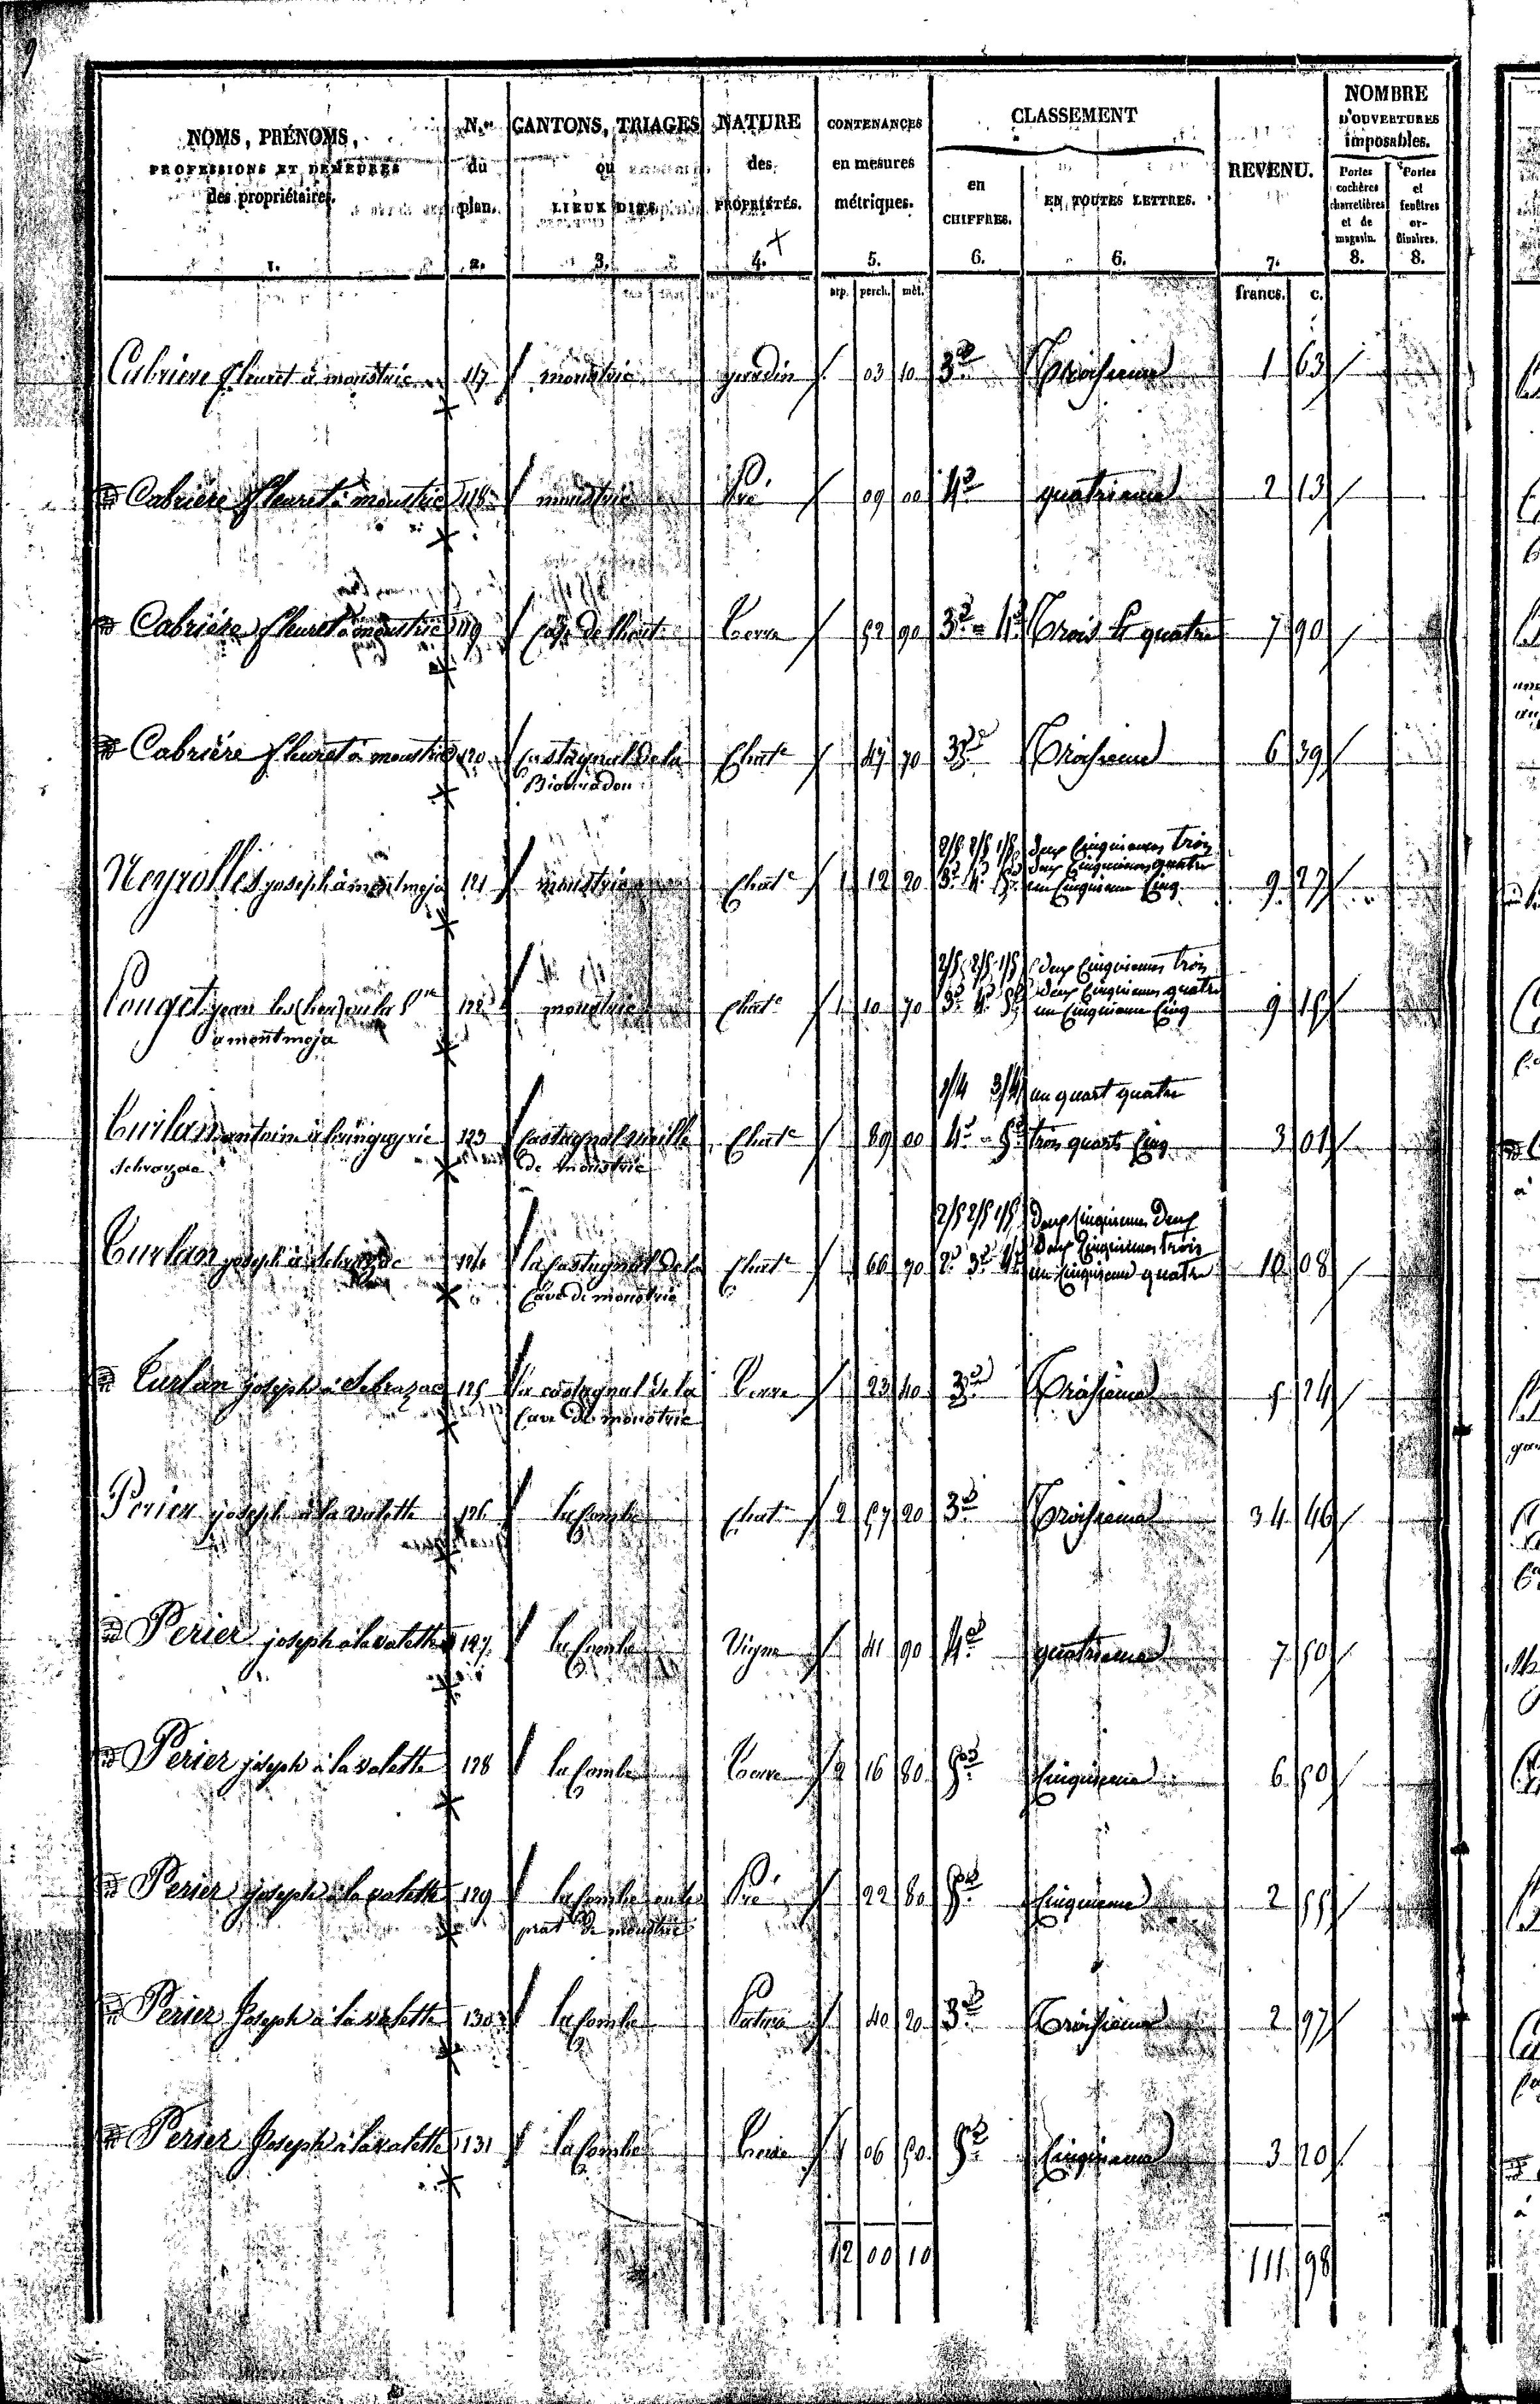 9
NOMS, PRÉNOMS, PROFESSIONS ET DEMEURES des propriétaires. 1.
N.os du plan. 2.
CANTONS, TRIAGES ou LIEUX DITS. 3.
NATURE des PROPRIÉTÉS. 4.
CONTENANCES en mesures métriques. 5.
CLASSEMENT
en CHIFFRES. 6.
EN TOUTES LETTRES. 6.
REVENU. 7.
NOMBRE D'OUVERTURES imposables.
Portes cochères charretières et de magasin. 8.
Portes et fenêtres ordinaires. 8.
arp. perch. mèt. francs. c.
Cabrière fleuret à moustrie 117 moustrie jardin 03 10 3e Troisieme 1 63
Cabriere fleuret à moustrie 118 moustrie Pré 09 00 4e quatrieme 2 13
Cabriére fleuret à moustrie 119 terre 52 90 3e = 4e Trois Et quatre 7 90
Cabriére fleuret à moustrie 120 Castagnal de la Chate 47 70 3e Troisieme 6 39
2/5 2/5 1/5 deux Cinquiemes trois
deux Cinquiemes quatre
Neyrolles joseph à montmeja 121 moustrie Chate 1 12 20 3e 4e 5e un Cinquieme Cinq 9 27
2/5 2/5 1/5 deux Cinquiemes trois
deux Cinquiemes quatre
Pouget jean 122 moustrie Chate 1 10 70 3e 4e 5e un Cinquieme Cinq 9 15
à montmeja
1/4 3/4 un quart quatre
Curlan antoine 123 Castagnal vieille Chate 89 00 4e = 5e trois quarts Cinq 3 01
de moustrie
2/5 2/5 1/5 Deux Cinquiemes Deux
Deux Cinquiemes trois
Curlan joseph à 124 la Castagnal de la Chate 66 70 2e 3e 4e un Cinquieme quatre 10 08
Cave de moustrie
Curlan joseph à 125 la castagnal de la terre 23 40 3e Troisiéme 5 24
Cave de moustrie
Perier joseph à la valette 126 la Combe Chate 2 57 20 3e Troisieme 34 46
Perier joseph à la valette 127 la Combe Vigne 41 90 4e quatrieme 7 50
Perier joseph à la valette 128 la Combe terre 2 16 80 5e Cinquieme 6 50
Perier joseph à la valette 129 la Combe Pré 22 80 5e Cinquieme 2 55
prat de moustrie
Perier Joseph à la valette 130 la Combe Pature 40 20 3e Troisieme 2 97
Perier Joseph à la valette 131 la Combe terre 1 06 50 5e Cinquieme 3 20
12 00 10 111 98